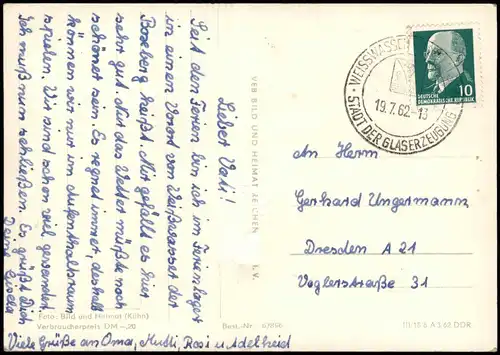 Lieber Vati!
Seit den Ferien bin ich im Ferienlager
in einen Vorort von Weißwasser der
Boxberg heißt. Mir gefällt es hier
sehr gut. Nur das Wetter müßte noch
schöner sein. Es regnet immer, deshalb
können wir nur im Aufenthaltsraum
spielen. Wir sind schon viel gewandert.
Ich muß nun schließen. Es grüßt Dich
Deine Gisela
Viele Grüße an Oma, Mutti, Rosi u. Adelheid
Foto: Bild und Heimat (Kühn)
Verbraucherpreis DM –,20
Best.-Nr.
VEB BILD UND HEIMAT REICHENBACH I. V.
WEISSWASSER
19.7.62-13
STADT DER GLASERZEUGUNG
DEUTSCHE
DEMOKRATISCHE REPUBLIK
10
An Herrn
Gerhard Ungermann
Dresden A 21
Voglerstraße 31
III/15 6 A 3 62 DDR